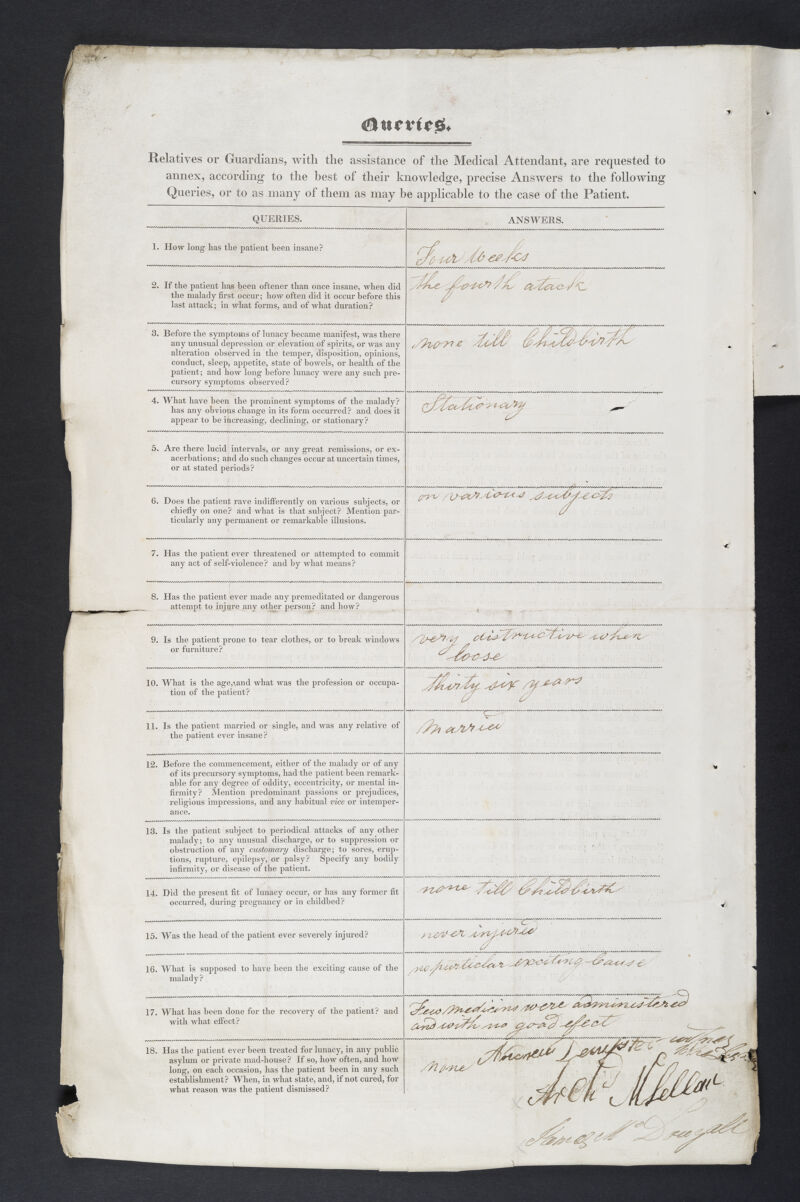 Queries.
Relatives or Guardians, with the assistance of the Medical Attendant, are requested to
annex, according to the best of their knowledge, precise Answers to the following
Queries, or to as many of them as may be applicable to the case of the Patient.
QUERIES.
ANSWERS.
1. How long has the patient been insane?
Four Weeks
2. If the patient has been oftener than once insane, when did
the malady first occur; how often did it occur before this
last attack; in what forms, and of what duration?
the fourth atack
3. Before the symptoms of lunacy became manifest, was there
any unusual depression or elevation of spirits, or was any
alteration observed in the temper, disposition, opinions,
conduct, sleep, appetite, state of bowels, or health of the
patient; and how long before lunacy were any such pre-
cursory symptoms observed?
none till Childbirth
4. What have been the prominent symptoms of the malady?
has any obvious change in its form occurred? and does it
appear to be increasing, declining, or stationary?
Stationary
5. Are there lucid intervals, or any great remissions, or ex-
acerbations; and do such changes occur at uncertain times,
or at stated periods?
6. Does the patient rave indifferently on various subjects, or
chiefly on one? and what is that subject? Mention par-
ticularly any permanent or remarkable illusions.
on various subjects
7. Has the patient ever threatened or attempted to commit
any act of self-violence? and by what means?
8. Has the patient ever made any premeditated or dangerous
attempt to injure any other person? and how?
9. Is the patient prone to tear clothes, or to break windows
or furniture?
very distructive when
loose
10. What is the age, and what was the profession or occupa-
tion of the patient?
thirty six years
11. Is the patient married or single, and was any relative of
the patient ever insane?
Married
12. Before the commencement, either of the malady or of any
of its precursory symptoms, had the patient been remark-
able for any degree of oddity, eccentricity, or mental in-
firmity? Mention predominant passions or prejudices,
religious impressions, and any habitual vice or intemper-
ance.
13. Is the patient subject to periodical attacks of any other
malady; to any unusual discharge, or to suppression or
obstruction of any customary discharge; to sores, erup-
tions, rupture, epilepsy, or palsy? Specify any bodily
infirmity, or disease of the patient.
14. Did the present fit of lunacy occur, or has any former fit
occurred, during pregnancy or in childbed?
none till Childbirth
15. Was the head of the patient ever severely injured?
never injured
16. What is supposed to have been the exciting cause of the
malady?
no particular exciting Cause
17. What has been done for the recovery of the patient? and
with what effect?
Few medicins were administered
and with no good efect
18. Has the patient ever been treated for lunacy, in any public
asylum or private mad-house? If so, how often, and how
long, on each occasion, has the patient been in any such
establishment? When, in what state, and, if not cured, for
what reason was the patient dismissed?
none
Andrew Dempster witnes
Archd McLellan
James McDougall